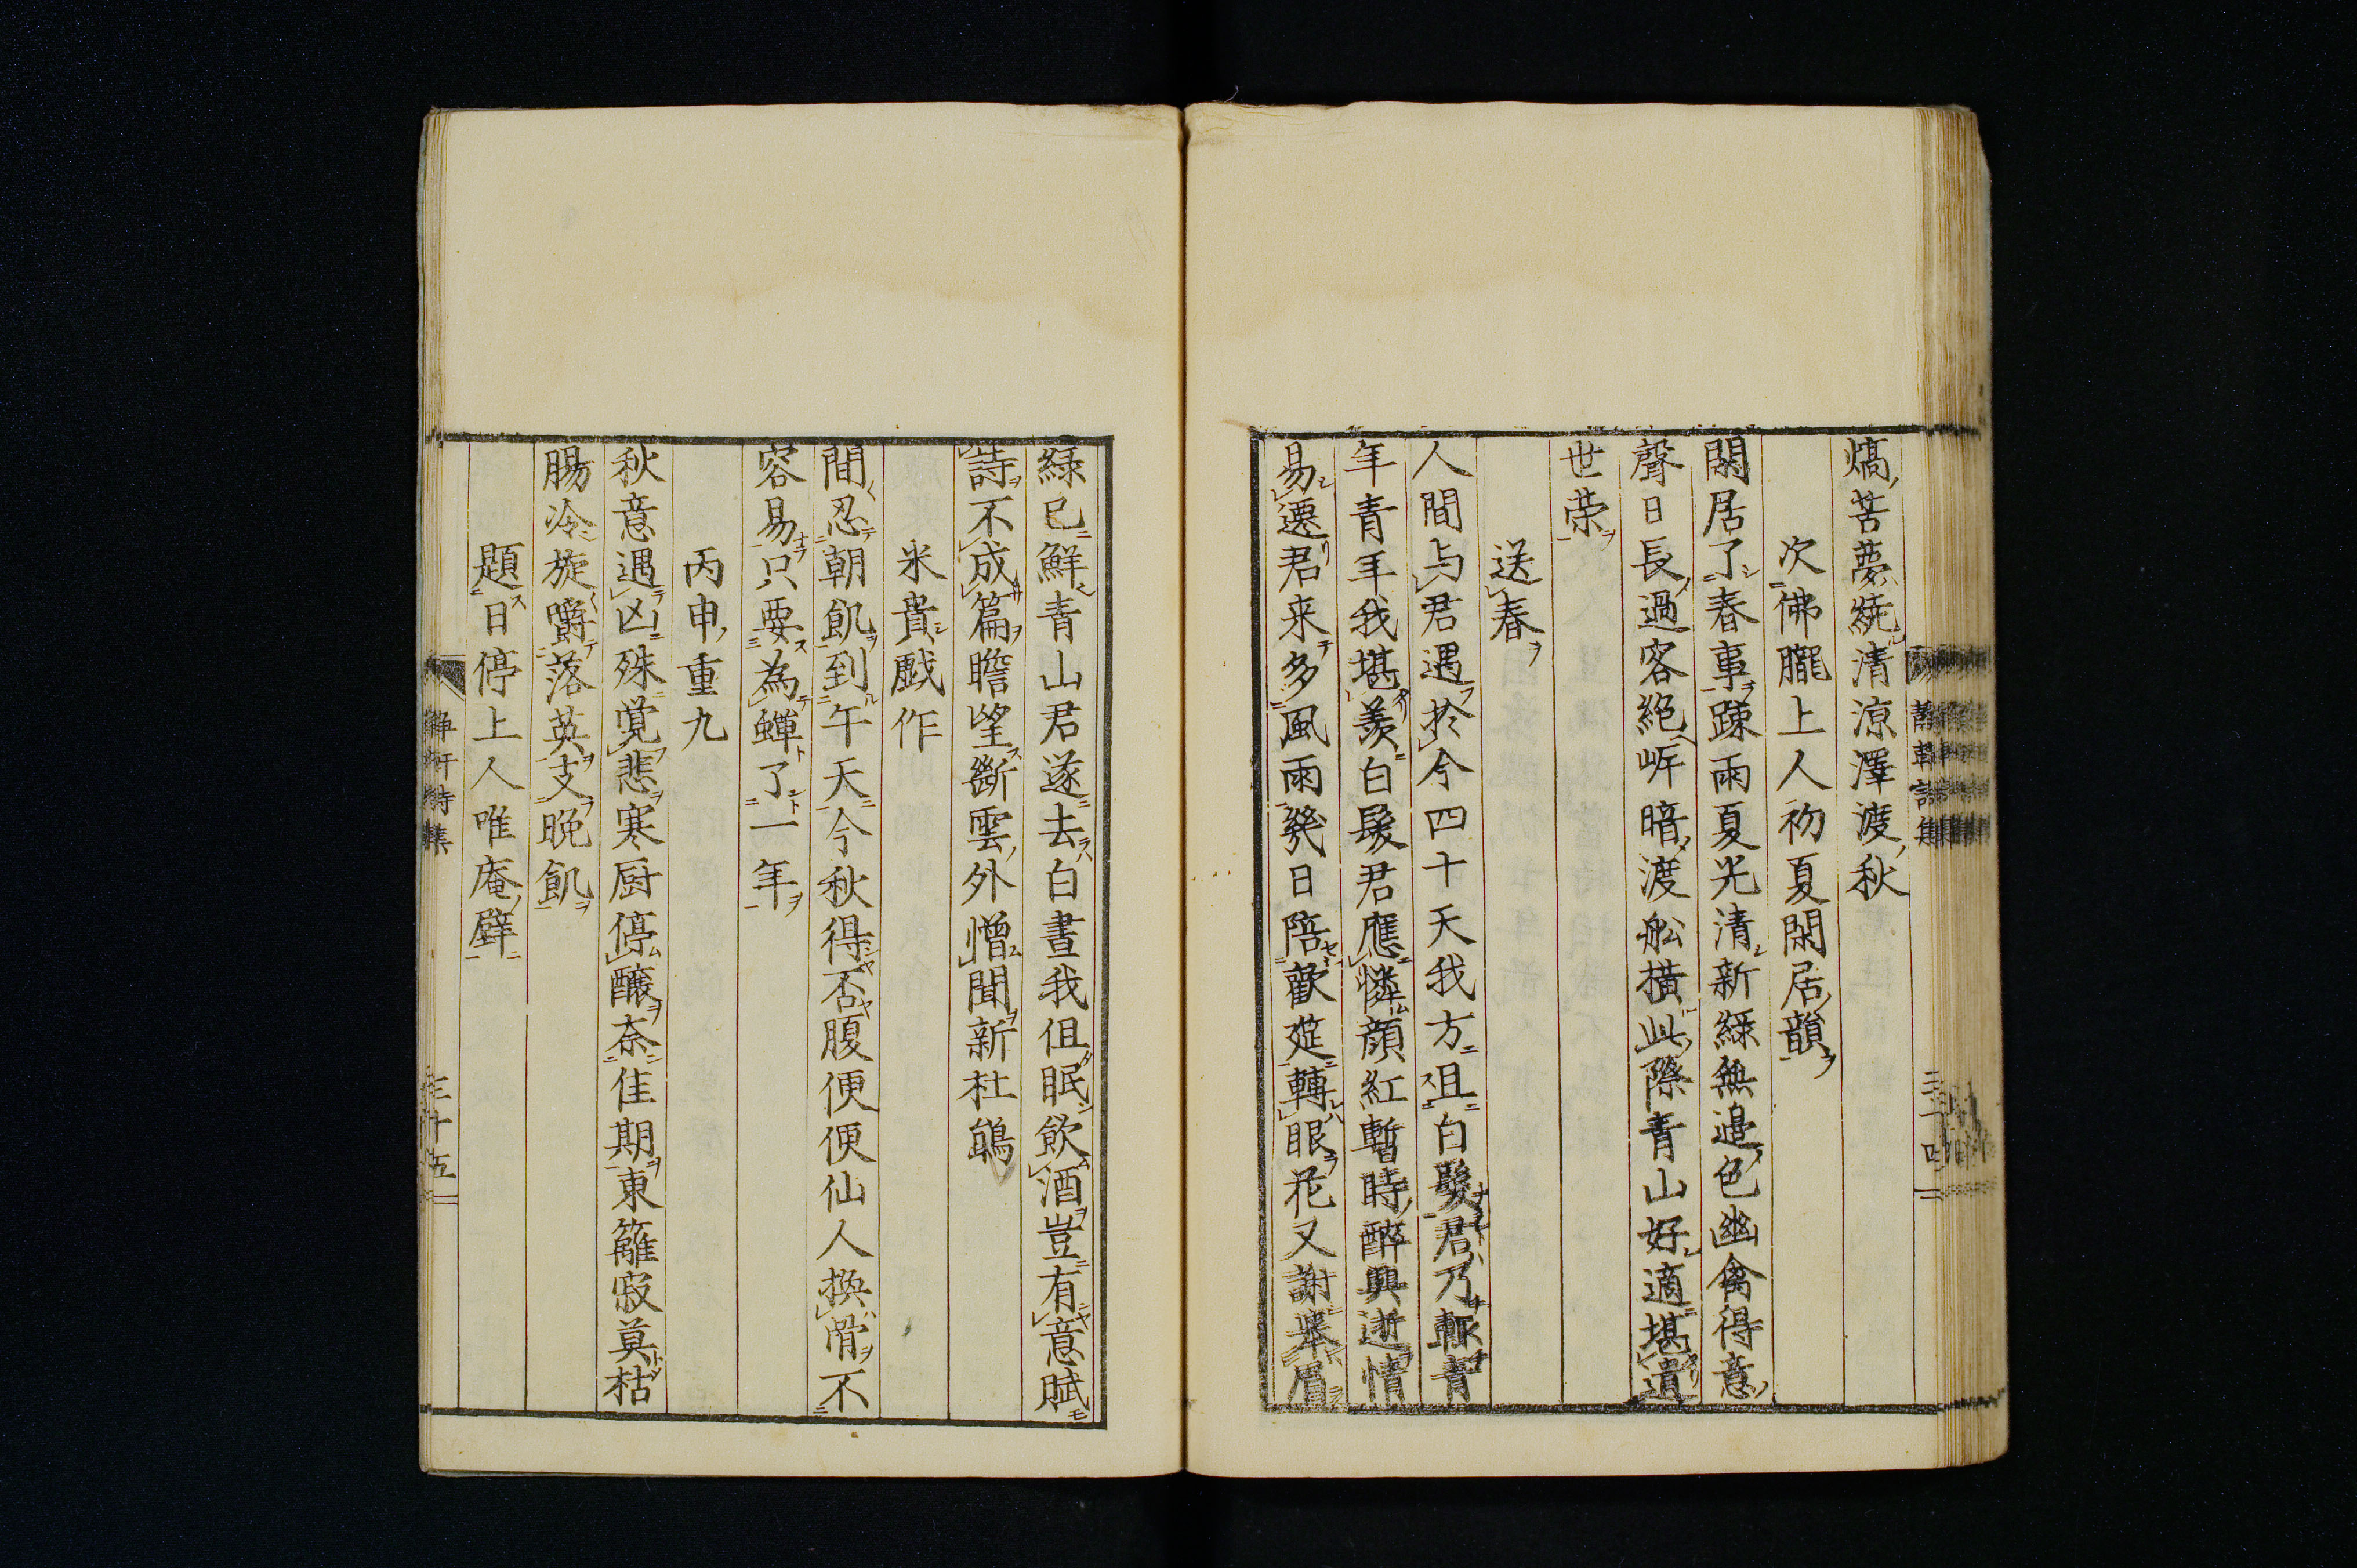 熇苦夢繞清涼澤渡秋
次佛朧上人初夏閑居韻
閑居了春事疎雨夏光清新緑無邉色幽禽得意
聲日長過客絶岍暗渡舩橫此際青山好適堪遺
世荣
送春
人間与君遇於今四十天我方且白髮君乃輒青
年青年我堪羨白髮君應憐顔紅暫時醉興逝情
易遷君来多風雨幾日陪歡筵轉眼花又謝擧眉
緑已鮮青山君遂去白晝我但眠飲酒豈有意賦
詩不成篇瞻望斷雲外憎聞新杜鵑
米貴戯作
間忍朝飢到午天今秋得否腹便便仙人換骨不
容易只要為蟬了一年
丙申重九
秋意遇凶殊覚悲寒厨停釀奈佳期東籬寂莫枯
腸冷旋嚼落英支晩飢
題日停上人唯庵壁
三十五